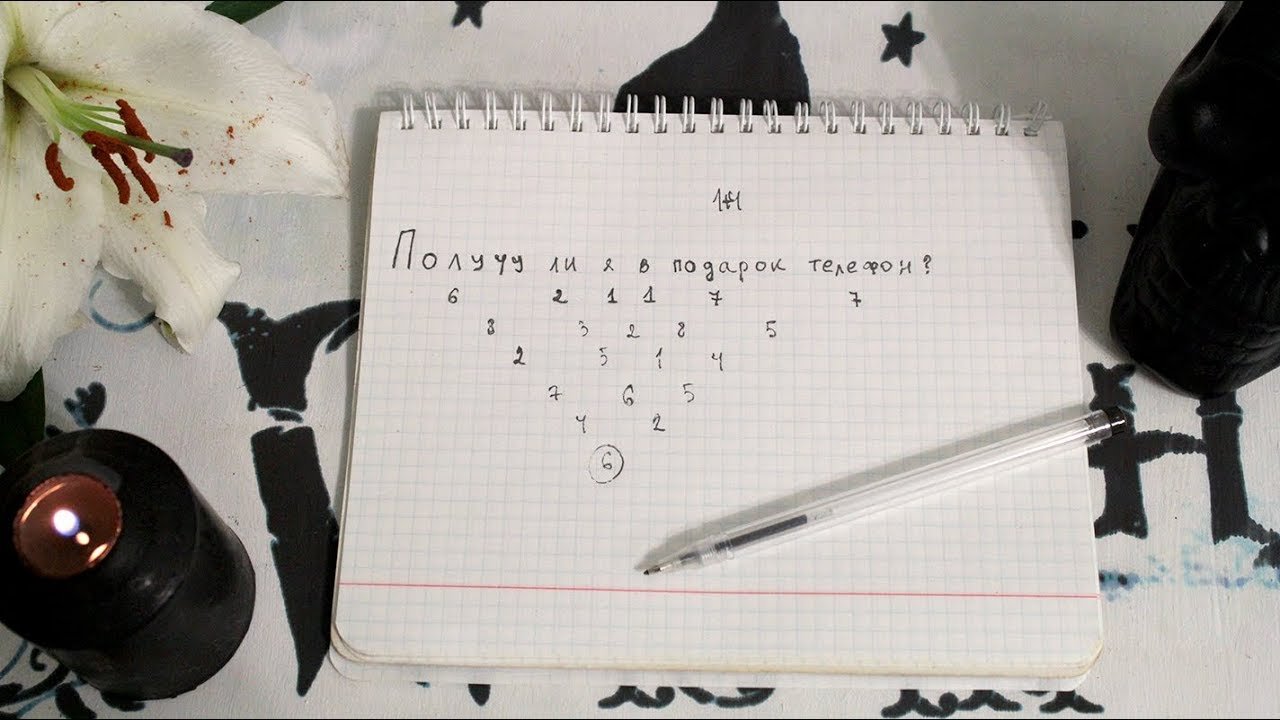 1+1
Получу ли я в подарок телефон?
6 2 1 1 7 7
8 3 2 8 5
2 5 1 4
7 6 5
4 2
6